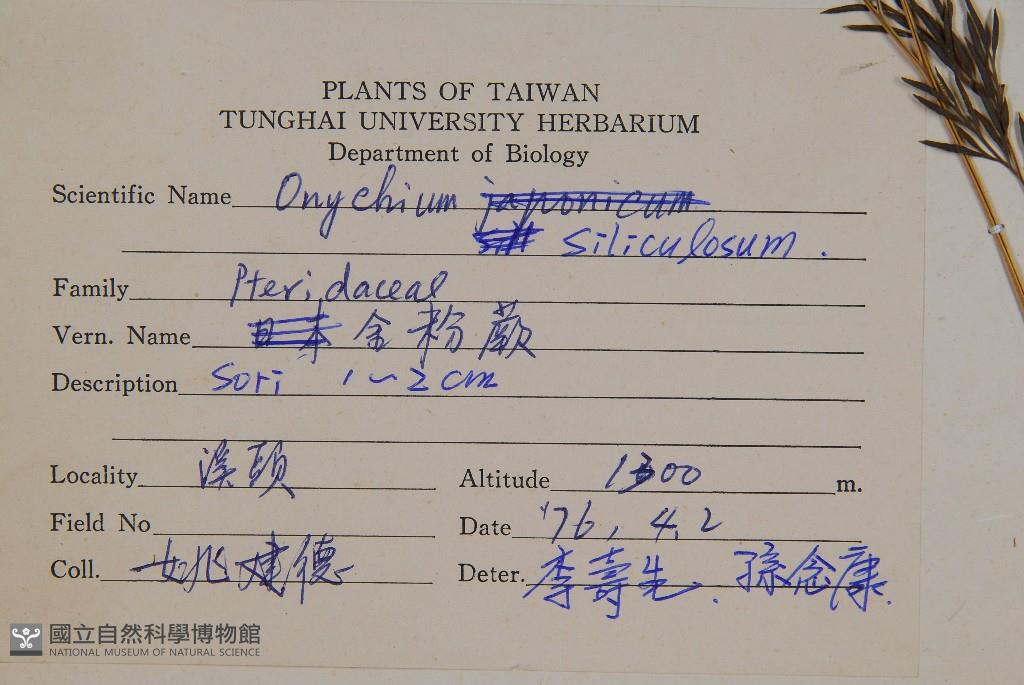 PLANTS OF TAIWAN
TUNGHAI UNIVERSITY HERBARIUM
Department of Biology
Scientific Name Onychium japonicum
siliculosum.
Family Pteridaceae
Vern. Name 日本金粉蕨
Description Sori 1~2cm
Locality 溪頭 Altitude 1300 m.
Field No Date '76, 4.2
Coll. 姚建德 Deter. 李壽先. 孫念康.
國立自然科學博物館
NATIONAL MUSEUM OF NATURAL SCIENCE